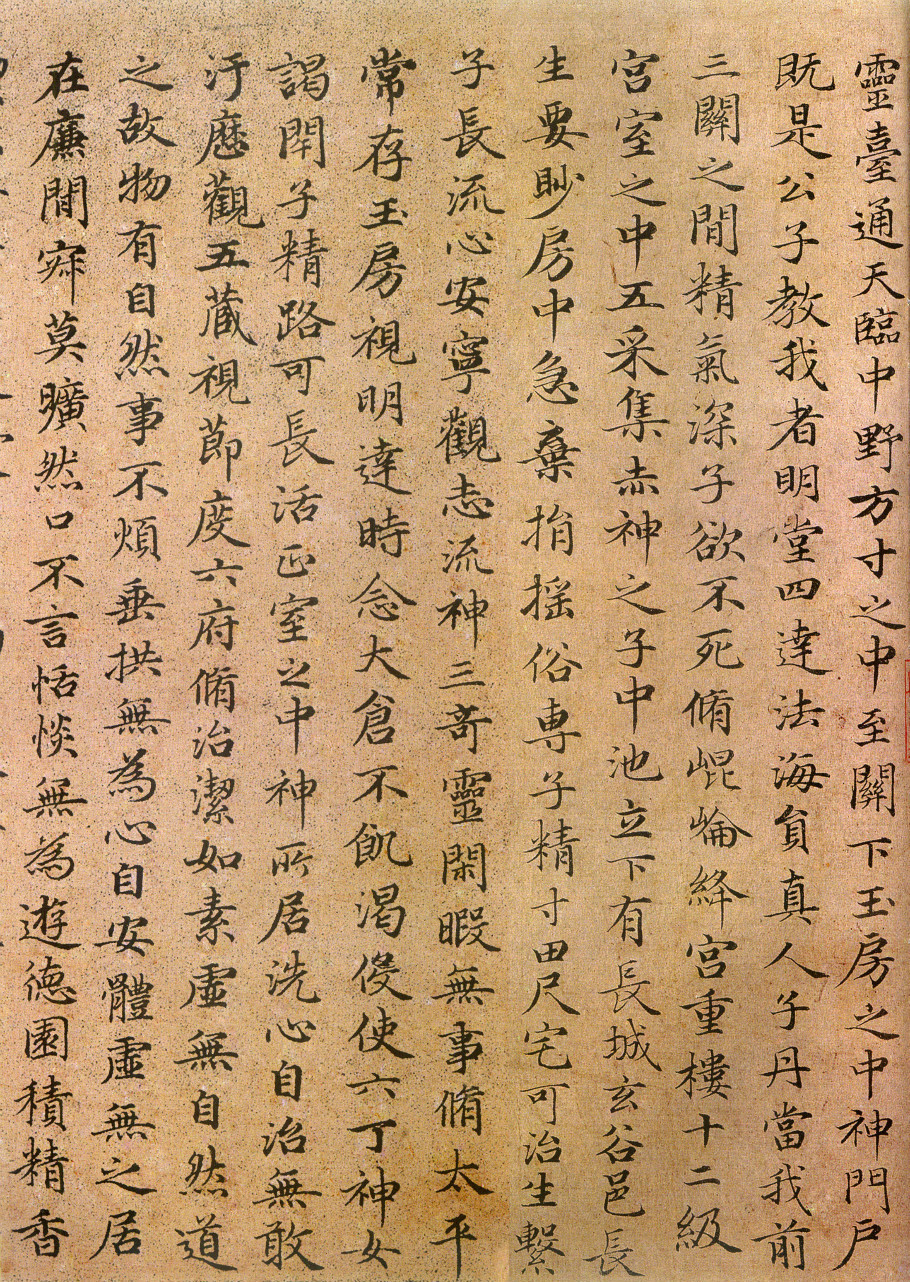 靈臺通天臨中野方寸之中至關下玉房之中神門戶
既是公子教我者明堂四達法海負真人子丹當我前
三關之閒精氣深子欲不死脩崐崘絳宮重樓十二級
宮室之中五采集赤神之子中池立下有長城玄谷邑長
生要眇房中急棄捐搖俗專子精寸田尺宅可治生繫
子長流心安寧觀志流神三奇靈閑暇無事脩太平
常存玉房視明達時念大倉不飢渴役使六丁神女
謁閇子精路可長活正室之中神所居洗心自治無敢
汙歷觀五藏視節度六府脩治潔如素虛無自然道
之故物有自然事不煩垂拱無為心自安體虛無之居
在廉閒寂莫曠然口不言恬惔無為遊德園積精香